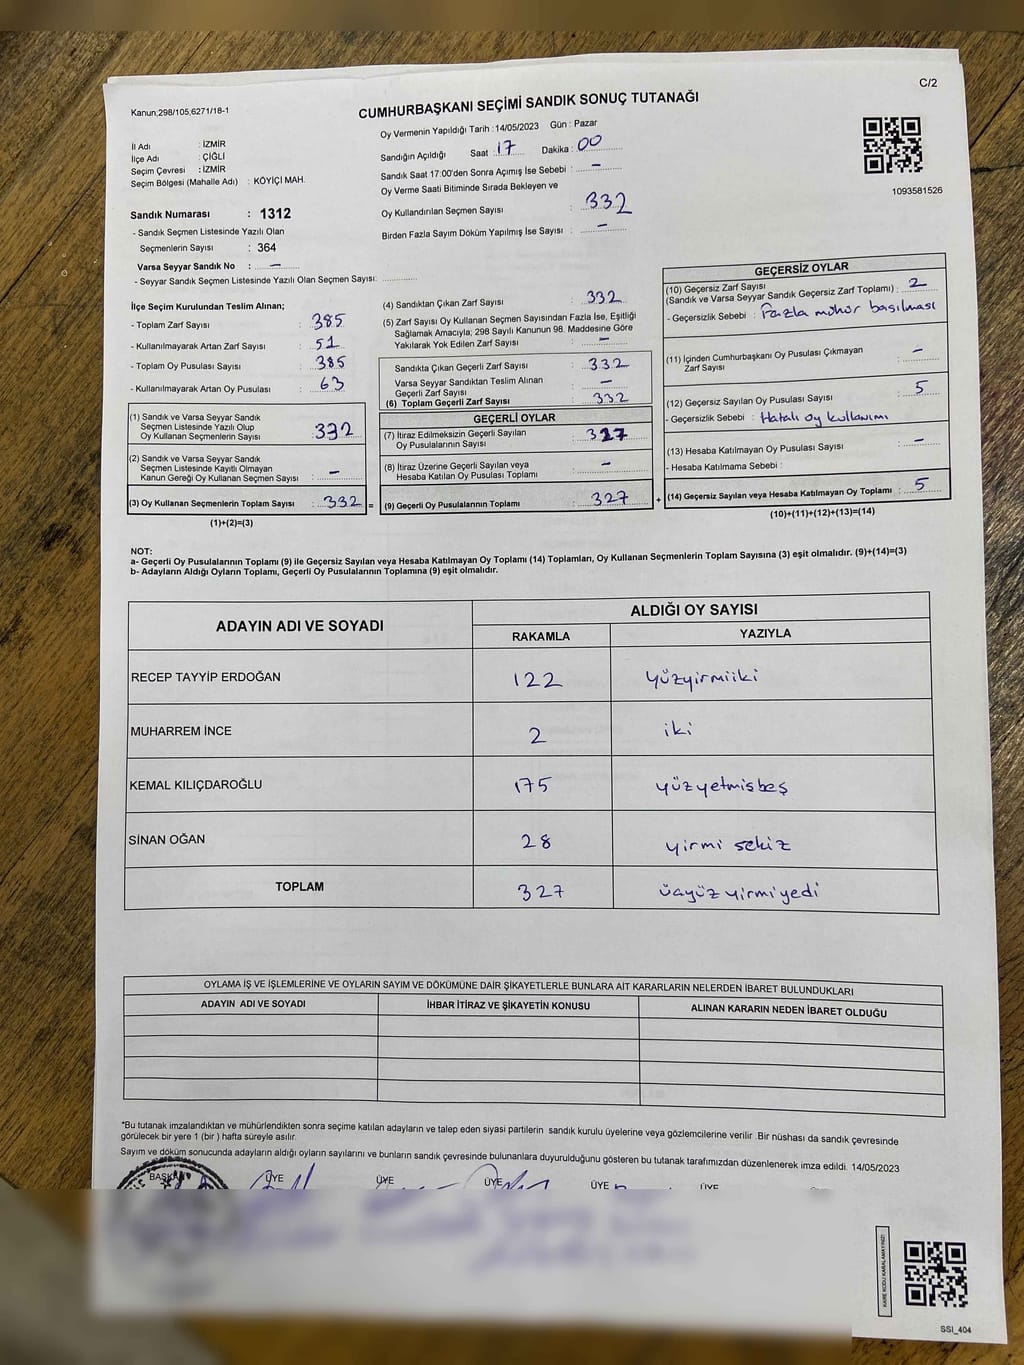 Kanun;298/105,6271/18-1
CUMHURBAŞKANI SEÇİMİ SANDIK SONUÇ TUTANAĞI
C/2
İl Adı : İZMİR
İlçe Adı : ÇİĞLİ
Seçim Çevresi : İZMİR
Seçim Bölgesi (Mahalle Adı) : KÖYİÇİ MAH.
Sandık Numarası : 1312
- Sandık Seçmen Listesinde Yazılı Olan
Seçmenlerin Sayısı : 364
Varsa Seyyar Sandık No : –
- Seyyar Sandık Seçmen Listesinde Yazılı Olan Seçmen Sayısı:
Oy Vermenin Yapıldığı Tarih : 14/05/2023 Gün : Pazar
Sandığın Açıldığı Saat : 17 Dakika : 00
Sandık Saat 17:00'den Sonra Açımış İse Sebebi : –
Oy Verme Saati Bitiminde Sırada Bekleyen ve
Oy Kullandırılan Seçmen Sayısı : 332
Birden Fazla Sayım Döküm Yapılmış İse Sayısı : –
1093581526
İlçe Seçim Kurulundan Teslim Alınan;
- Toplam Zarf Sayısı : 385
- Kullanılmayarak Artan Zarf Sayısı : 51
- Toplam Oy Pusulası Sayısı : 385
- Kullanılmayarak Artan Oy Pusulası : 63
(1) Sandık ve Varsa Seyyar Sandık
Seçmen Listesinde Yazılı Olup
Oy Kullanan Seçmenlerin Sayısı : 332
(2) Sandık ve Varsa Seyyar Sandık
Seçmen Listesinde Kayıtlı Olmayan
Kanun Gereği Oy Kullanan Seçmen Sayısı : –
(3) Oy Kullanan Seçmenlerin Toplam Sayısı : 332 =
(1)+(2)=(3)
(4) Sandıktan Çıkan Zarf Sayısı : 332
(5) Zarf Sayısı Oy Kullanan Seçmen Sayısından Fazla İse, Eşitliği
Sağlamak Amacıyla; 298 Sayılı Kanunun 98. Maddesine Göre
Yakılarak Yok Edilen Zarf Sayısı : –
Sandıkta Çıkan Geçerli Zarf Sayısı : 332
Varsa Seyyar Sandıktan Teslim Alınan
Geçerli Zarf Sayısı : –
(6) Toplam Geçerli Zarf Sayısı : 332
GEÇERLİ OYLAR
(7) İtiraz Edilmeksizin Geçerli Sayılan
Oy Pusulalarının Sayısı : 327
(8) İtiraz Üzerine Geçerli Sayılan veya
Hesaba Katılan Oy Pusulası Toplamı : –
(9) Geçerli Oy Pusulalarının Toplamı : 327 +
GEÇERSİZ OYLAR
(10) Geçersiz Zarf Sayısı
(Sandık ve Varsa Seyyar Sandık Geçersiz Zarf Toplamı) : 2
- Geçersizlik Sebebi : Fazla mühür basılması
(11) İçinden Cumhurbaşkanı Oy Pusulası Çıkmayan
Zarf Sayısı : –
(12) Geçersiz Sayılan Oy Pusulası Sayısı : 5
- Geçersizlik Sebebi : Hatalı oy kullanımı
(13) Hesaba Katılmayan Oy Pusulası Sayısı : –
- Hesaba Katılmama Sebebi :
(14) Geçersiz Sayılan veya Hesaba Katılmayan Oy Toplamı : 5
(10)+(11)+(12)+(13)=(14)
NOT:
a- Geçerli Oy Pusulalarının Toplamı (9) ile Geçersiz Sayılan veya Hesaba Katılmayan Oy Toplamı (14) Toplamları, Oy Kullanan Seçmenlerin Toplam Sayısına (3) eşit olmalıdır. (9)+(14)=(3)
b- Adayların Aldığı Oyların Toplamı, Geçerli Oy Pusulalarının Toplamına (9) eşit olmalıdır.
ADAYIN ADI VE SOYADI ALDIĞI OY SAYISI
RAKAMLA YAZIYLA
RECEP TAYYİP ERDOĞAN 122 yüzyirmiiki
MUHARREM İNCE 2 iki
KEMAL KILIÇDAROĞLU 175 yüzyetmişbeş
SİNAN OĞAN 28 yirmi sekiz
TOPLAM 327 üçyüz yirmiyedi
OYLAMA İŞ VE İŞLEMLERİNE VE OYLARIN SAYIM VE DÖKÜMÜNE DAİR ŞİKAYETLERLE BUNLARA AİT KARARLARIN NELERDEN İBARET BULUNDUKLARI
ADAYIN ADI VE SOYADI İHBAR İTİRAZ VE ŞİKAYETİN KONUSU ALINAN KARARIN NEDEN İBARET OLDUĞU
*Bu tutanak imzalandıktan ve mühürlendikten sonra seçime katılan adayların ve talep eden siyasi partilerin sandık kurulu üyelerine veya gözlemcilerine verilir. Bir nüshası da sandık çevresinde
görülecek bir yere 1 (bir ) hafta süreyle asılır.
Sayım ve döküm sonucunda adayların aldığı oyların sayılarını ve bunların sandık çevresinde bulunanlara duyurulduğunu gösteren bu tutanak tarafımızdan düzenlenerek imza edildi. 14/05/2023
BAŞKAN ÜYE ÜYE ÜYE ÜYE ÜYE
KARE KODU KARALAMAYINIZ!
SSI_404